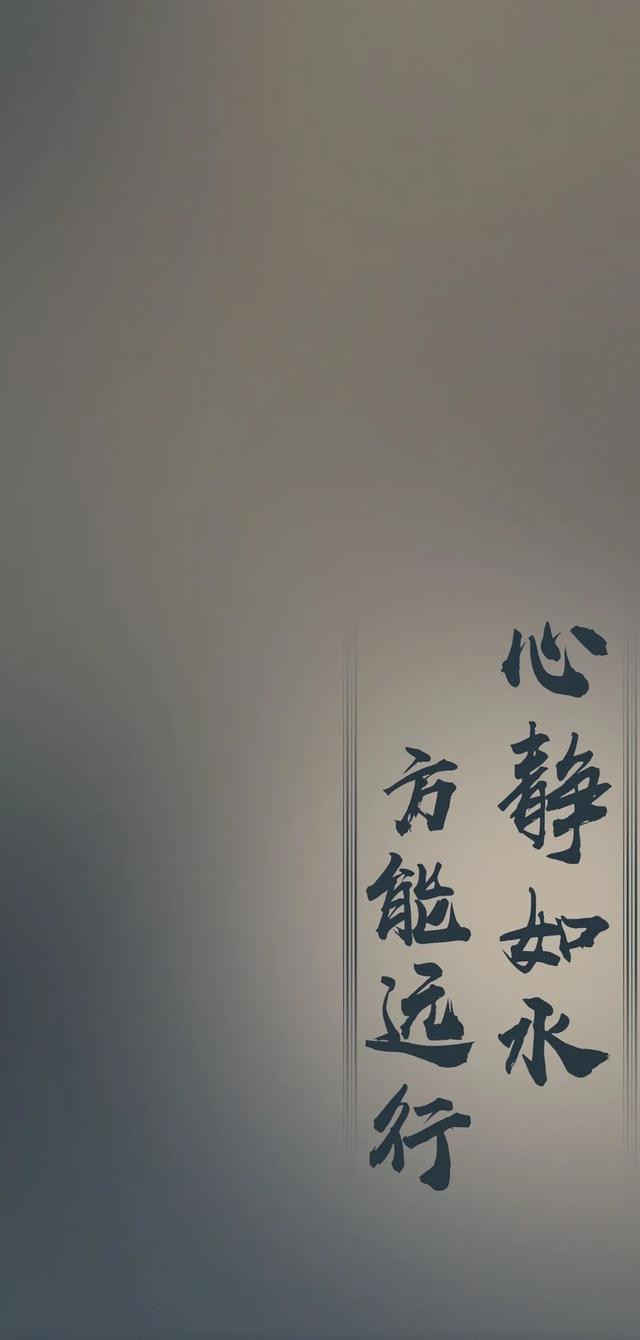 心静如水
方能远行